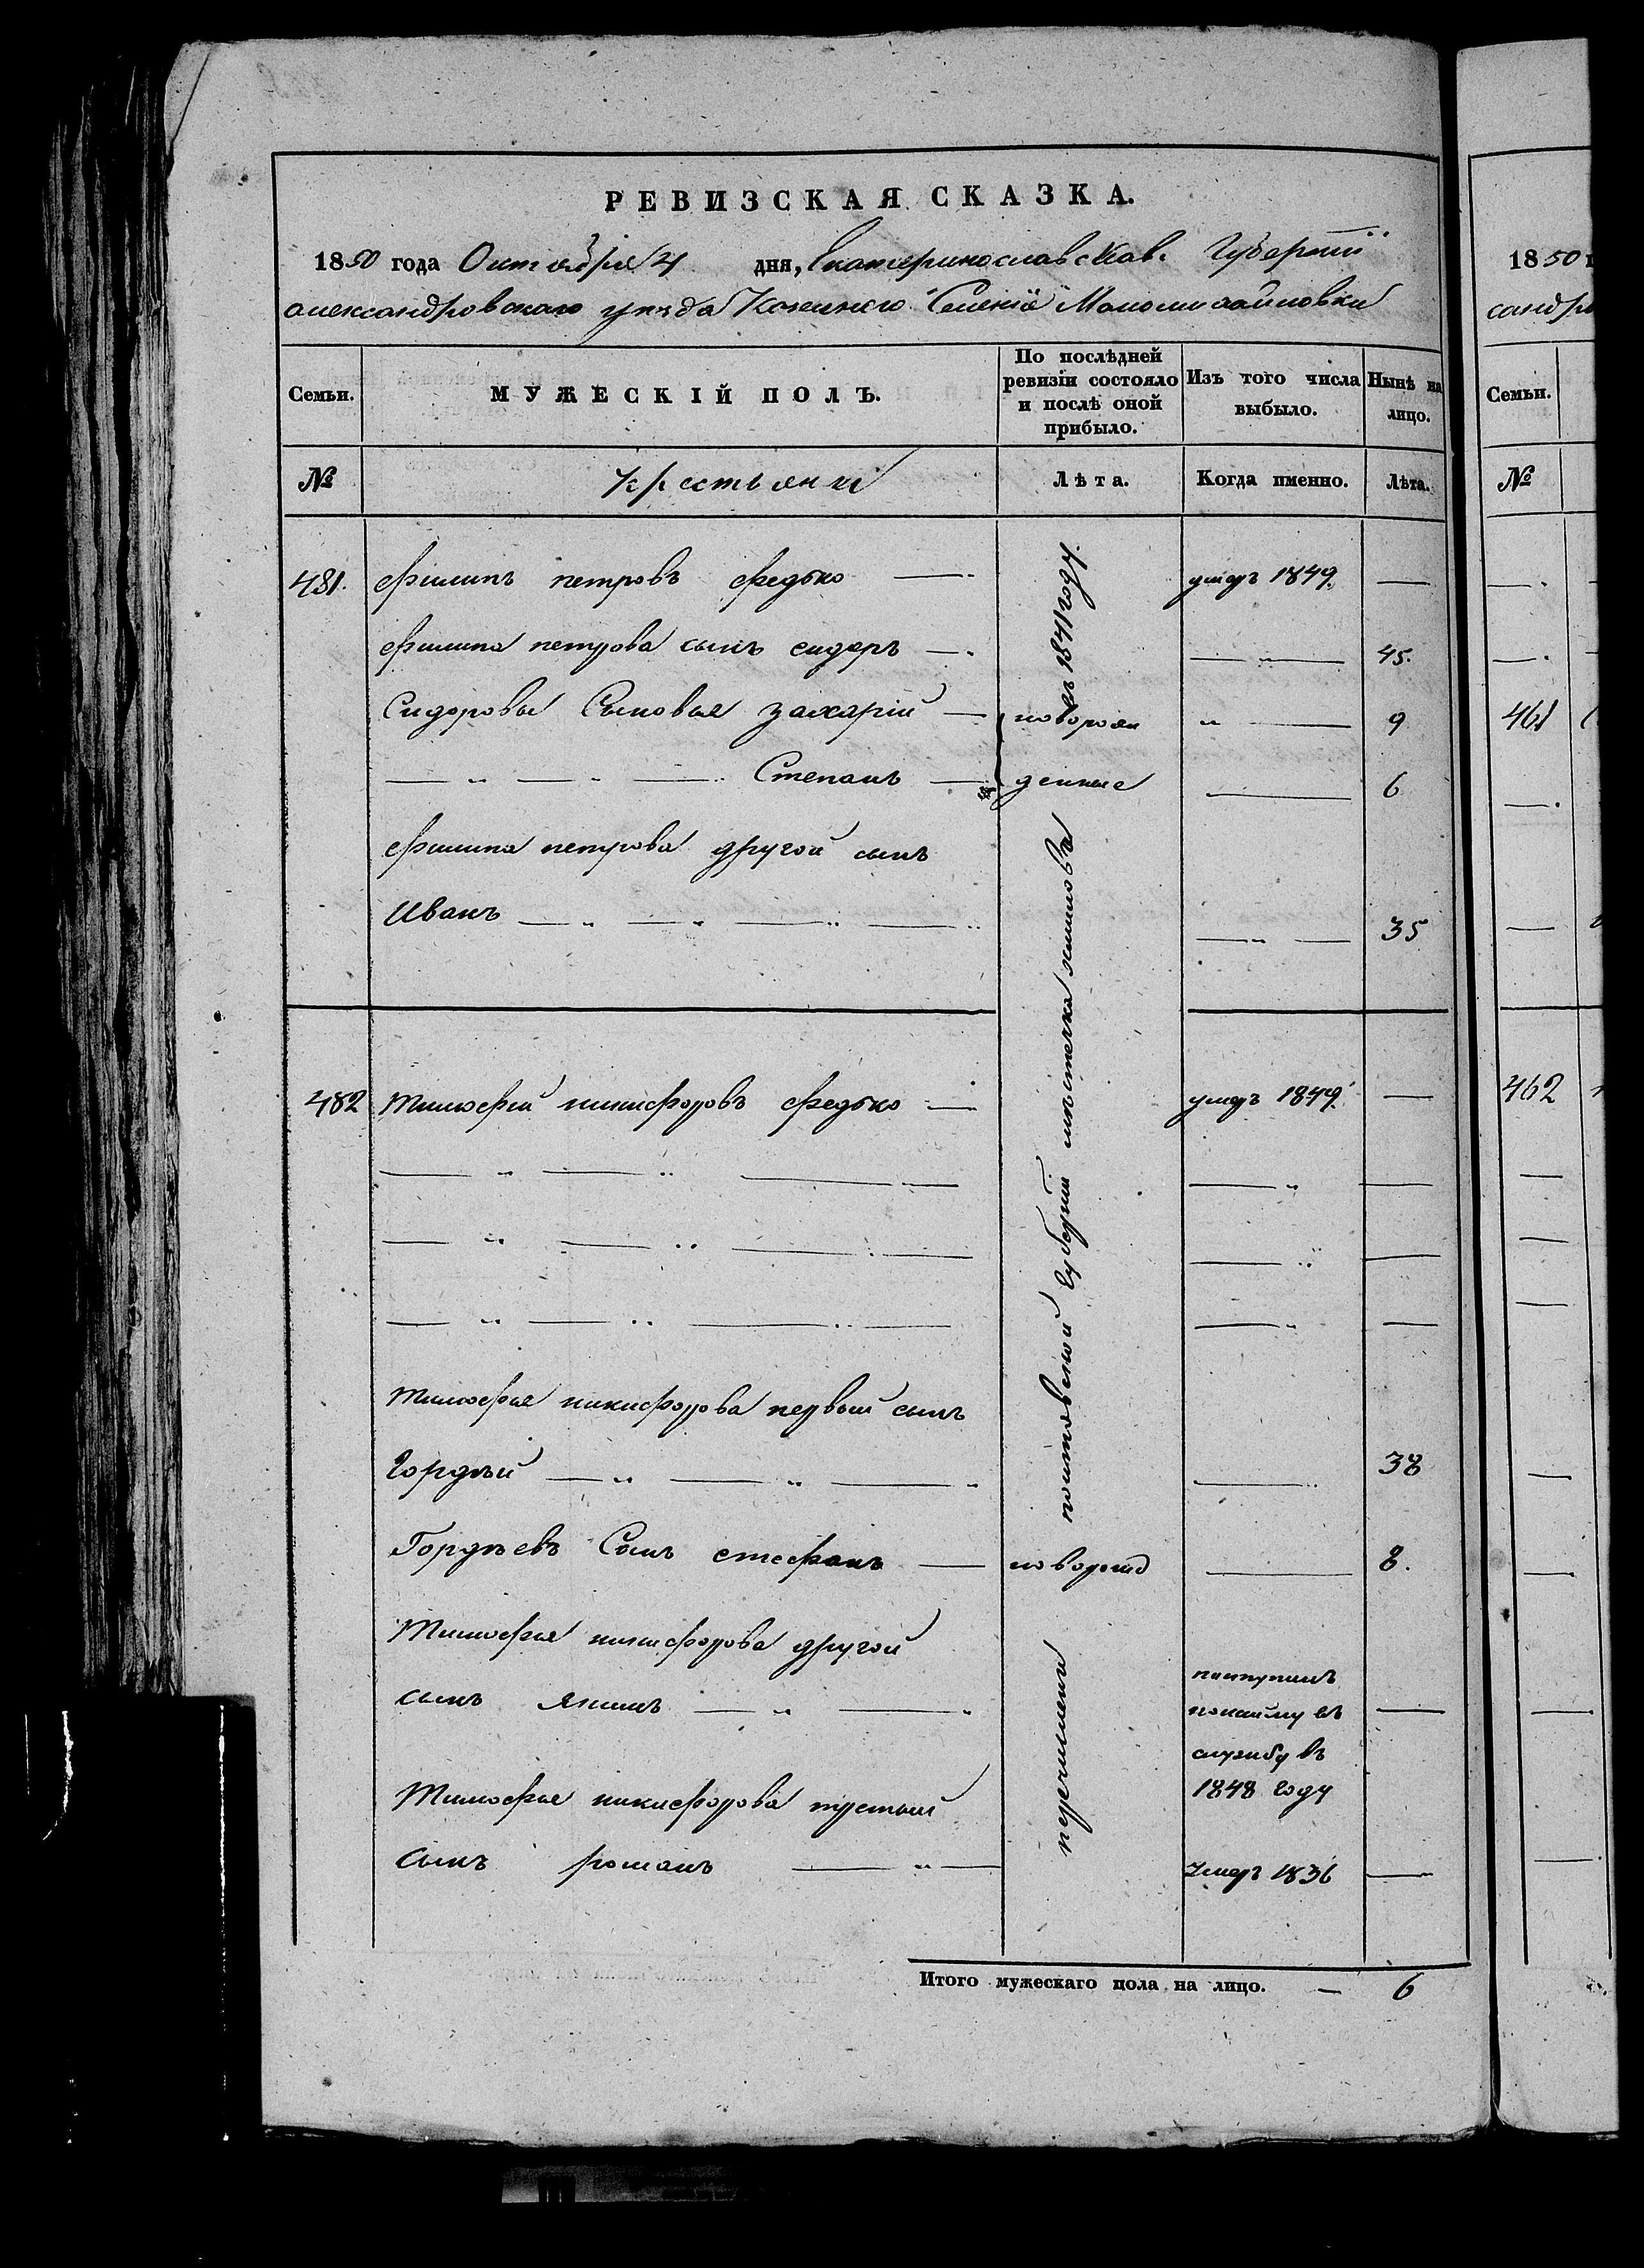 РЕВИЗСКАЯ СКАЗКА.
1850 года Октября 4 дня, Екатеринославской Губернiи
александровскаго уезда Казеннаго Селенiя Маломихайловки
Семьи.
МУЖЕСКІЙ ПОЛЪ.
По послѣдней ревизіи состояло и послѣ оной прибыло.
Изъ того числа выбыло.
Нынѣ на лицо.
№
крестьяни
Лѣта.
Когда именно.
Лѣта.
481. филипъ петровъ федько — умеръ 1849. —
филипа петрова сынъ сидоръ — 45.
Сидоровы Сыновья захарiй — новорож 9
Степанъ — денные 6
филипа петрова другой сынъ
Иванъ — 35
482 тимофей никифоровъ федько — умеръ 1849. —
тимофея никифорова первый сынъ
Гордѣй — 38
Гордѣевъ Сынъ стефанъ — новорожд 8.
Тимофея никифорова другой
сынъ якимъ — поступилъ
по найму въ —
службу въ
1848 году
Тимофея никифорова третый
сынъ романъ — Умеръ 1836 —
перечислены полтавской Губернiи местечка въ 1841 году.
Итого мужескаго пола на лицо. — 6
1850
Семьи.
№
461
462